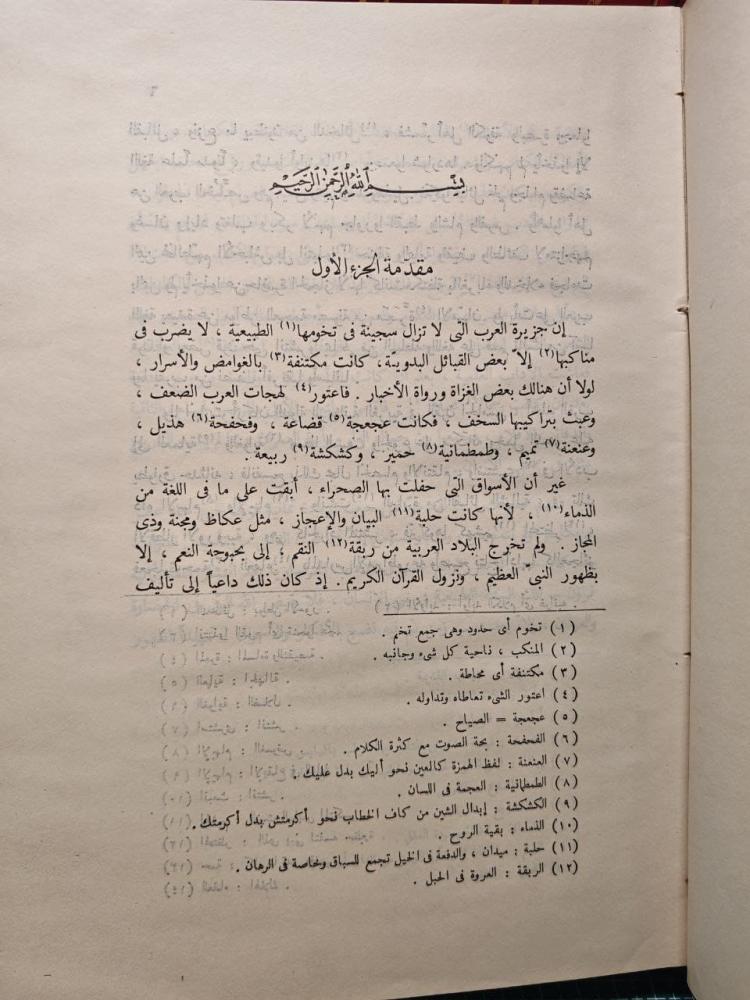 بسم الله الرحمن الرحيم
مقدّمة الجزء الأول
إن جزيرة العرب التى لا تزال سجينة فى تخومها(١) الطبيعية ، لا يضرب فى
مناكبها(٢) إلاّ بعض القبائل البدويّة، كانت مكتنفة(٣) بالغوامض والأسرار ،
لولا أن هنالك بعض الغزاة ورواة الأخبار . فاعتور(٤) لهجات العرب الضعف ،
وعيث بتراكيبها السخف ، فكانت عجعجة(٥) قضاعة ، وفحفحة(٦) هذيل ،
وعنعنة(٧) تميم ، وطمطمانية(٨) حمير ، وكشكشة(٩) ربيعة .
غير أن الأسواق التّى حفلت بها الصحراء ، أبقت على ما فى اللغة من
الذماء(١٠) ، لأنها كانت حلبة(١١) البيان والإعجاز ، مثل عكاظ ومجنة وذى
المجاز . ولم تخرج البلاد العربية من ربقة(١٢) النقم ، إلى بحبوحة النعم ، إلا
بظهور النبىّ العظيم ، ونزول القرآن الكريم . إذ كان ذلك داعياً إلى تأليف
(١) تخوم أى حدود وهى جمع تخم .
(٢) المنكب ، ناحية كل شىء وجانبه .
(٣) مكتنفة أى محاطة .
(٤) اعتور الشىء تعاطاه وتداوله .
(٥) عجعجة = الصياح .
(٦) الفحفحة : بحة الصوت مع كثرة الكلام .
(٧) العنعنة : لفظ الهمزة كالعين نحو أليك بدل عليك .
(٨) الطمطمانية : العجمة فى اللسان .
(٩) الكشكشة : إبدال الشين من كاف الخطاب نحو أكرمتش بدل أكرمتك .
(١٠) الذماء : بقية الروح .
(١١) حلبة : ميدان ، والدفعة فى الخيل تجمع للسباق وبخاصة فى الرهان .
(١٢) الربقة : العروة فى الحبل .